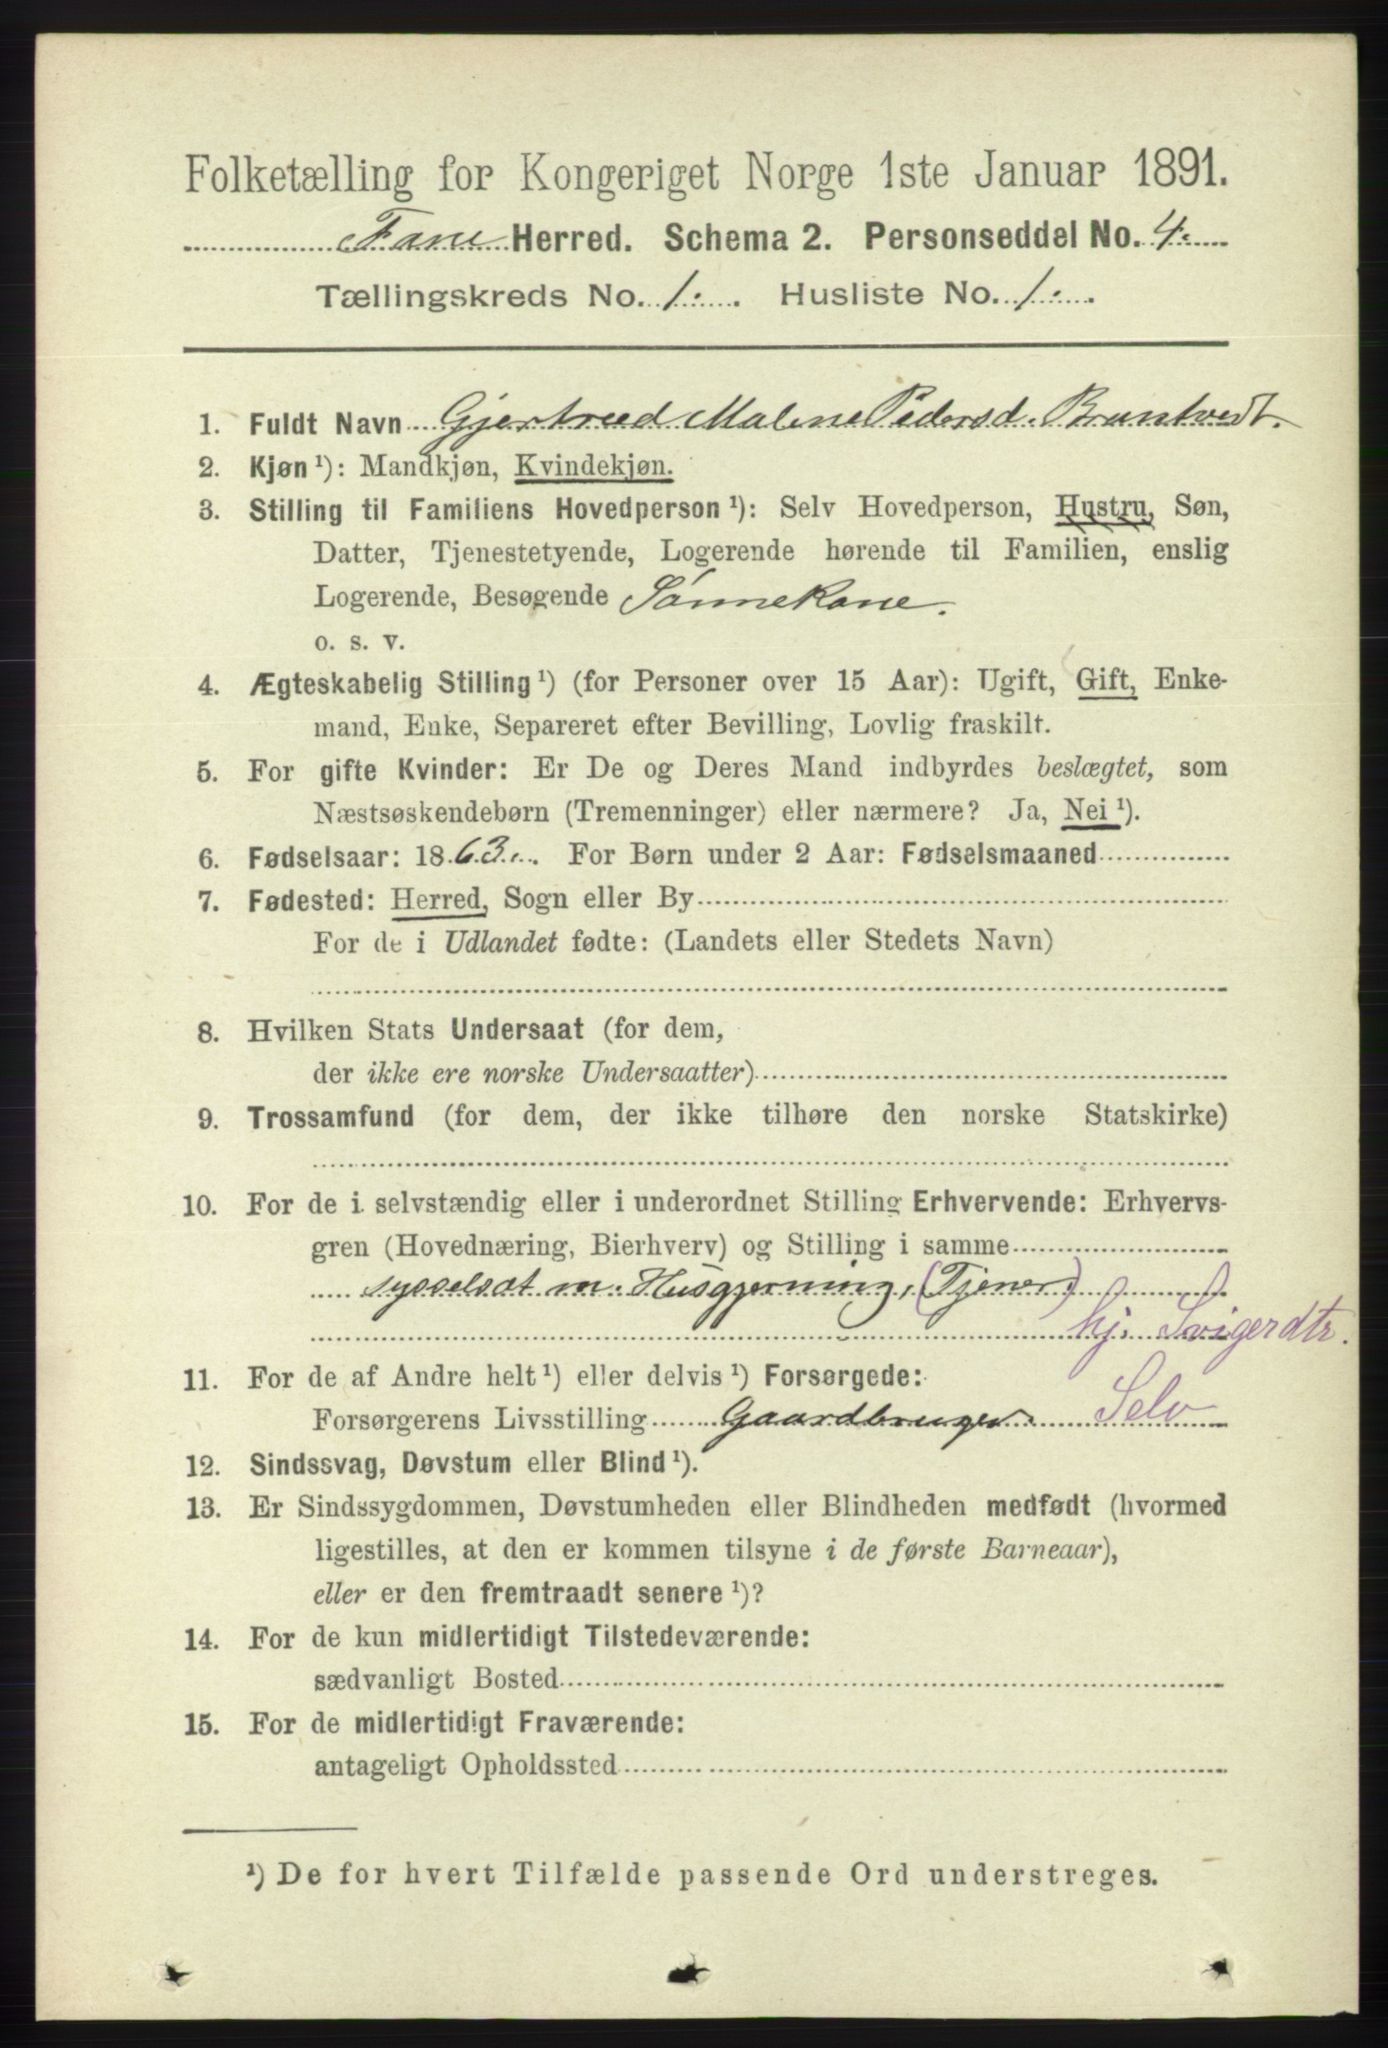 Folketælling for Kongeriget Norge 1ste Januar 1891.
Fane Herred. Schema 2. Personseddel No. 4.
Tællingskreds No. 1. Husliste No. 1.
1. Fuldt Navn Gjertrud Malene Pedersd. Brantvedt.
2. Kjøn ¹): Mandkjøn, Kvindekjøn.
3. Stilling til Familiens Hovedperson ¹): Selv Hovedperson, Hustru, Søn,
Datter, Tjenestetyende, Logerende hørende til Familien, enslig
Logerende, Besøgende Sønnekone.
o. s. v.
4. Ægteskabelig Stilling ¹) (for Personer over 15 Aar): Ugift, Gift, Enke-
mand, Enke, Separeret efter Bevilling, Lovlig fraskilt.
5. For gifte Kvinder: Er De og Deres Mand indbyrdes beslægtet, som
Næstsøskendebørn (Tremenninger) eller nærmere? Ja, Nei ¹).
6. Fødselsaar: 1863. For Børn under 2 Aar: Fødselsmaaned
7. Fødested: Herred, Sogn eller By
For de i Udlandet fødte: (Landets eller Stedets Navn)
8. Hvilken Stats Undersaat (for dem,
der ikke ere norske Undersaatter)
9. Trossamfund (for dem, der ikke tilhøre den norske Statskirke)
10. For de i selvstændig eller i underordnet Stilling Erhvervende: Erhvervs-
gren (Hovednæring, Bierhverv) og Stilling i samme
sysselsat m. Husgjerning, (Tjener)
hj. Svigerdtr.
11. For de af Andre helt ¹) eller delvis ¹) Forsørgede:
Forsørgerens Livsstilling Gaardbruger. Selv
12. Sindssvag, Døvstum eller Blind ¹).
13. Er Sindssygdommen, Døvstumheden eller Blindheden medfødt (hvormed
ligestilles, at den er kommen tilsyne i de første Barneaar),
eller er den fremtraadt senere ¹)?
14. For de kun midlertidigt Tilstedeværende:
sædvanligt Bosted
15. For de midlertidigt Fraværende:
antageligt Opholdssted
¹) De for hvert Tilfælde passende Ord understreges.